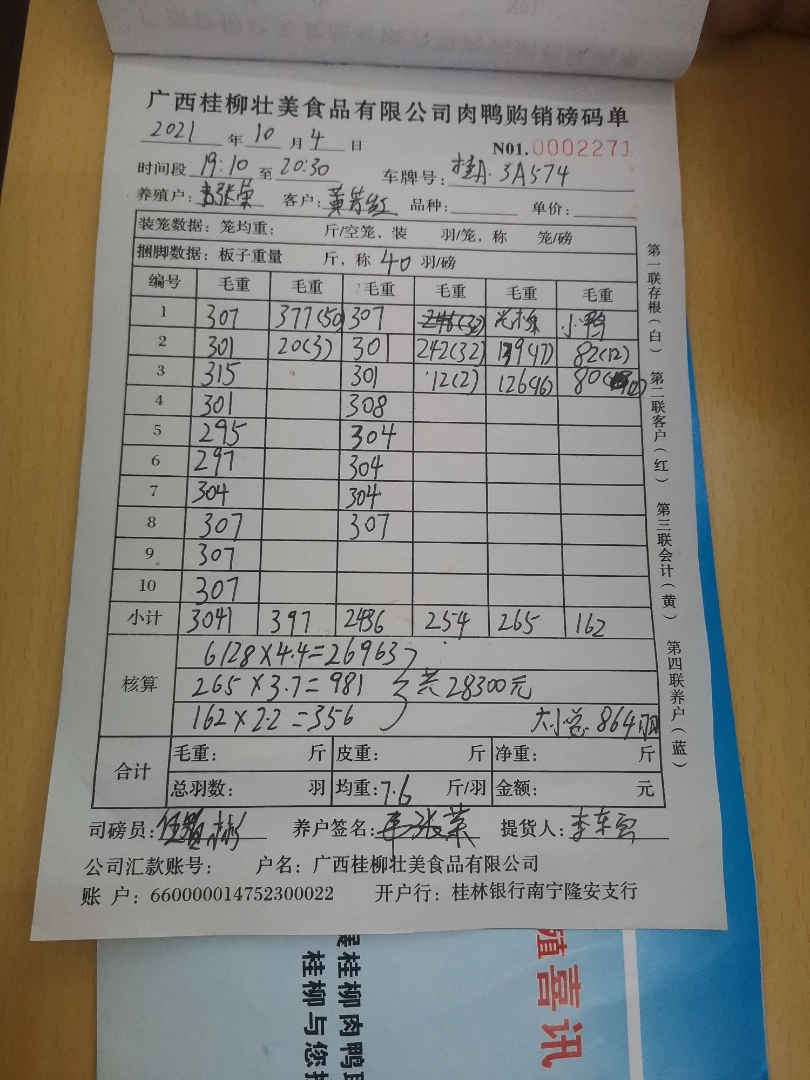 广西桂柳壮美食品有限公司肉鸭购销磅码单
2021 年 10 月 4 日 N01.0002271
时间段 19:10 至 20:30 车牌号: 桂A·3A574
养殖户: 韦张荣 客户: 黄芳红 品种: 单价:
装笼数据: 笼均重: 斤/空笼, 装 羽/笼, 称 笼/磅
捆脚数据: 板子重量 斤, 称 40 羽/磅
编号 毛重 毛重 毛重 毛重 毛重 毛重
1 307 377(50) 307 246(32) 小鸭
2 301 20(3) 301 242(32) 139(47) 82(12)
3 315 301 12(2) 126(46) 80
4 301 308
5 295 304
6 297 304
7 304 304
8 307 307
9 307
10 307
小计 3041 397 2436 254 265 162
核算 6128×4.4=26963
265×3.7=981 共28300元
162×2.2=356 大小总: 864羽
合计 毛重: 斤 皮重: 斤 净重: 斤
总羽数: 羽 均重: 7.6 斤/羽 金额: 元
司磅员: 养户签名: 韦张荣 提货人: 李东
公司汇款账号: 户名: 广西桂柳壮美食品有限公司
账 户: 660000014752300022 开户行: 桂林银行南宁隆安支行
第一联存根(白) 第二联客户(红) 第三联会计(黄) 第四联养户(蓝)
殖喜讯
桂柳肉鸭
桂柳与您